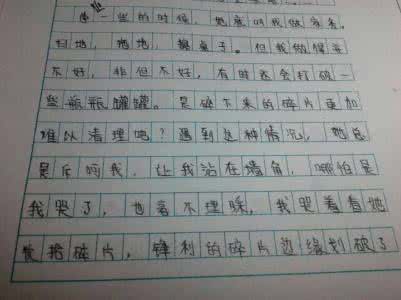 小一些的时候，她总叫我做家务。
扫地，拖地，擦桌子。但我做得并
不好，非但不好，有时还会打破一
些瓶瓶罐罐。是碎下来的碎片更加
难以清理吧？遇到这种情况，她总
是斥呵我，让我站在墙角，哪怕是
我哭了，也毫不理睬，我哭着看她
收拾碎片，锋利的碎片边缘划破了